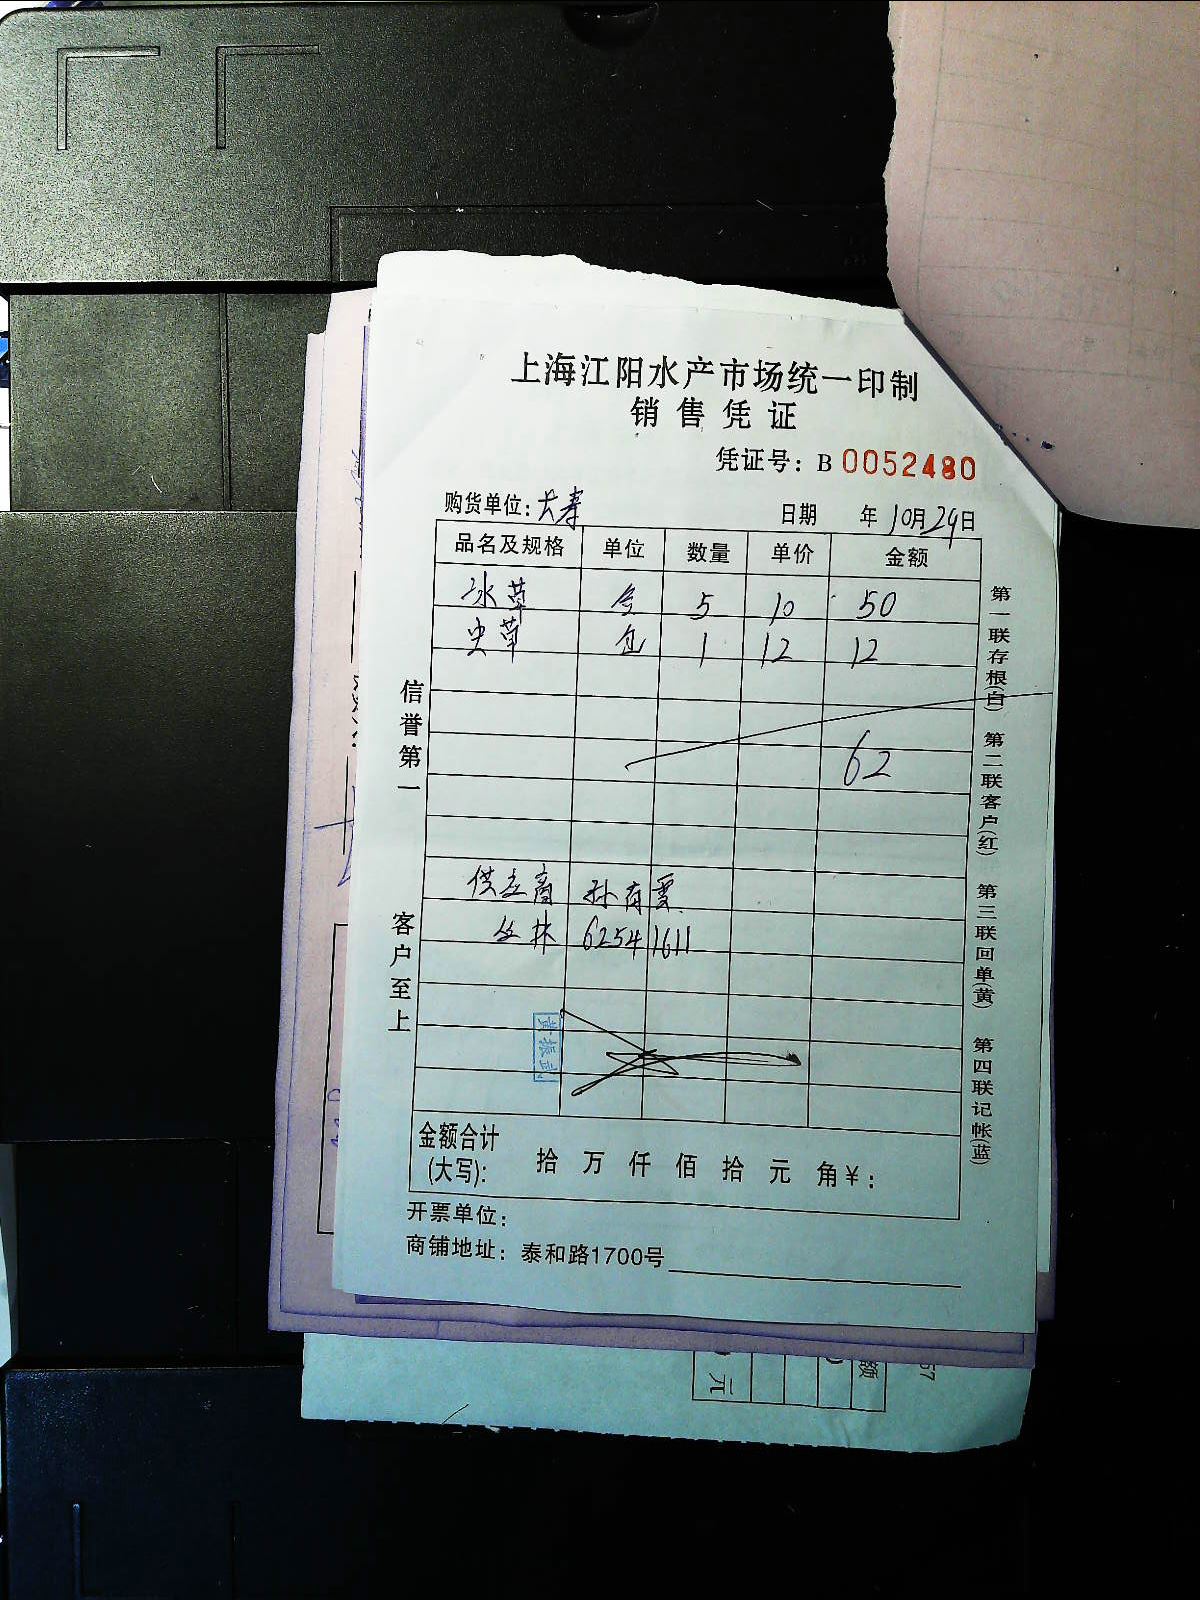 上海江阳水产市场统一印制
销售凭证
凭证号：B 0052480
购货单位：大寿 日期 年 10月29日
品名及规格 单位 数量 单价 金额
冰草 盒 5 10 50
虫草 包 1 12 12
62
供应商 孙有霞
丛林 62541611
黄振武
金额合计
(大写)： 拾 万 仟 佰 拾 元 角 ¥：
开票单位：
商铺地址：泰和路1700号
信誉第一
客户至上
第一联存根(白) 第二联客户(红) 第三联回单(黄) 第四联记帐(蓝)
额
元
57